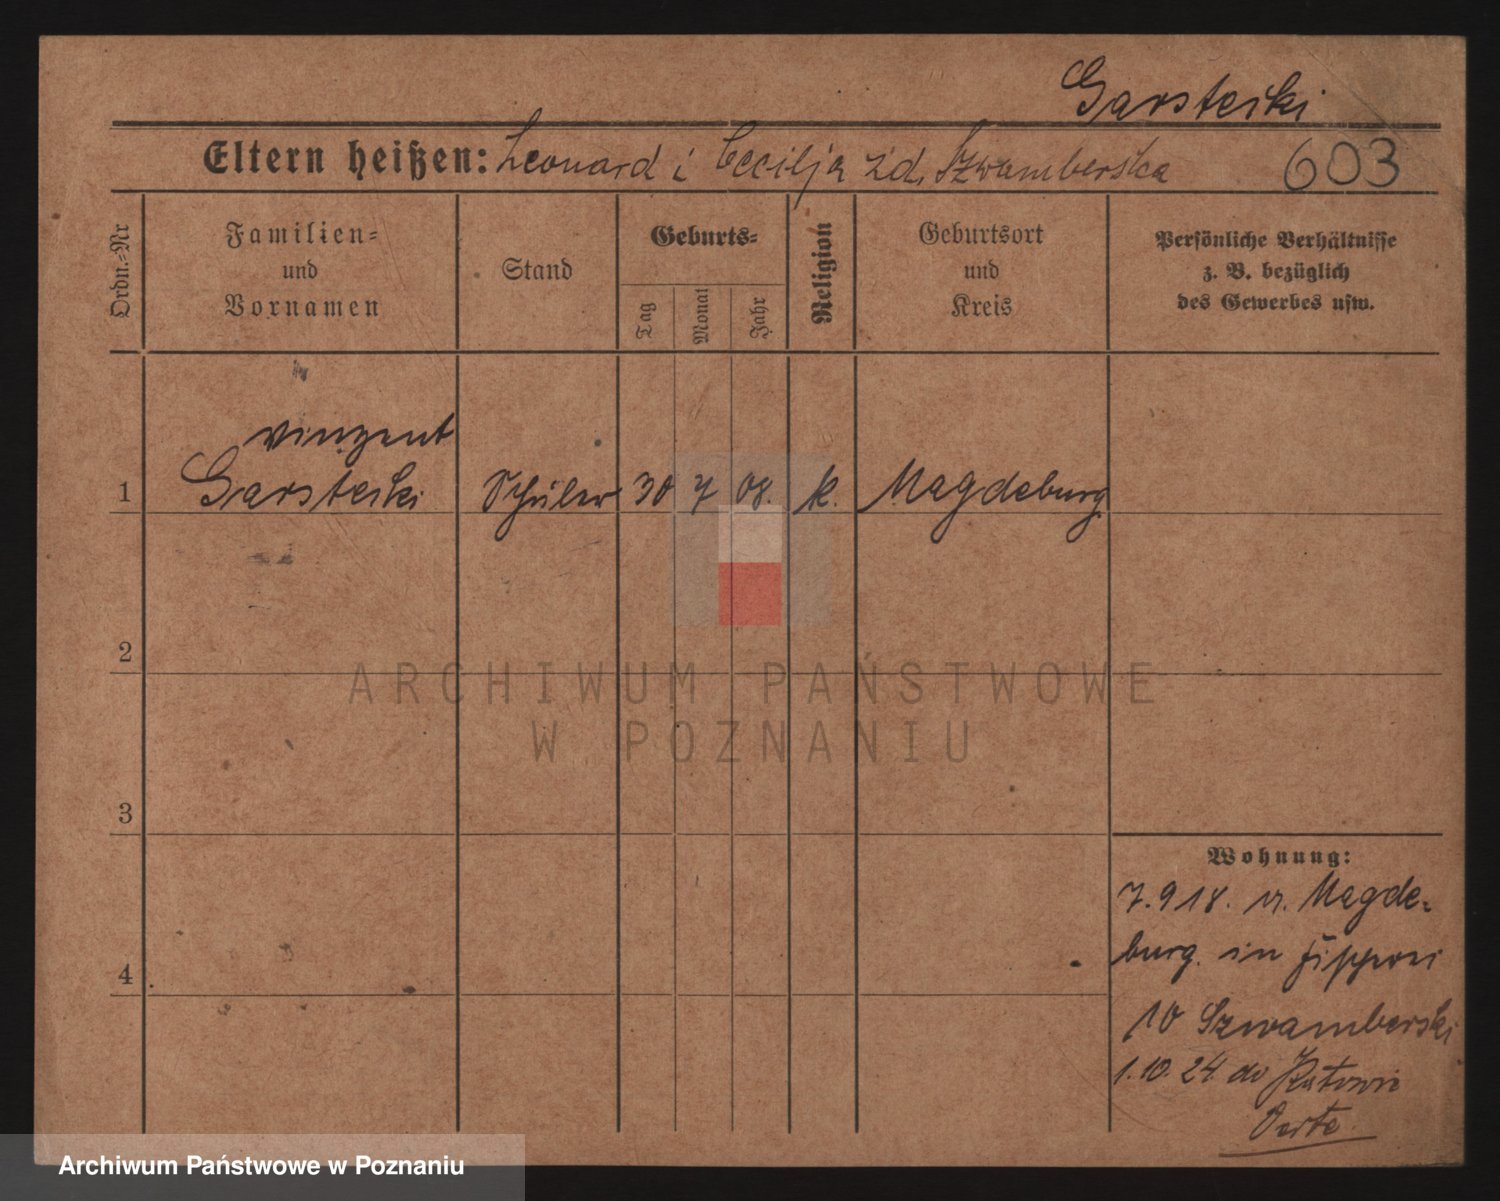 Garsteiki
Eltern heißen: Leonard i Cecilja zd. Szwamberska 603
Ordn.-Nr
Familien-
und
Vornamen
Stand
Geburts-
Tag
Monat
Jahr
Religion
Geburtsort
und
Kreis
Persönliche Verhältnisse
z. B. bezüglich
des Gewerbes usw.
Vinzent
1 Garsteiki Schüler 30 7 08. k. Magdeburg
2
3
4
Wohnung:
7.9 18. v. Magde-
burg. in Fischerei
10 Szwamberski
1.10.24 do
ARCHIWUM PAŃSTWOWE
W POZNANIU
Archiwum Państwowe w Poznaniu